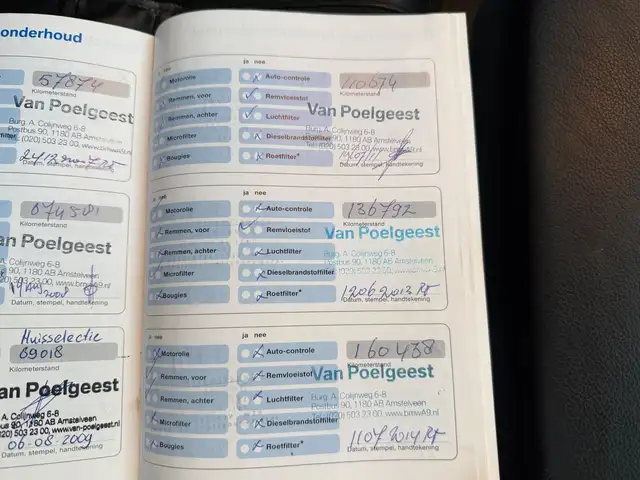 onderhoud
57874
Kilometerstand
Van Poelgeest
Burg. A. Colijnweg 6-8
Postbus 90, 1180 AB Amstelveen
(020) 503 23 00, www.bmwA9.nl
Datum, stempel, handtekening
Kilometerstand
Van Poelgeest
A. Colijnweg 6-8
90, 1180 AB Amstelveen
503 23 00, www.bmwA9.nl
Datum, stempel, handtekening
Huisselectie
69018
Kilometerstand
an Poelgeest
A. Colijnweg 6-8
90, 1180 AB Amstelveen
020) 503 23 00, www.van-poelgeest.nl
06-08-2009
handtekening
ja nee
Motorolie
Auto-controle
110674
Kilometerstand
Remmen, voor
Remvloeistof
Van Poelgeest
Remmen, achter
Luchtfilter
Burg. A. Colijnweg 6-8
Postbus 90, 1180 AB Amstelveen
Microfilter
Dieselbrandstoffilter
Tel. (020) 503 23 00, www.bmwA9.nl
Bougies
Roetfilter*
Datum, stempel, handtekening
ja nee
Motorolie
Auto-controle
136792
Kilometerstand
Remmen, voor
Remvloeistof
Van Poelgeest
Remmen, achter
Luchtfilter
Burg. A. Colijnweg 6-8
Postbus 90, 1180 AB Amstelveen
Microfilter
Dieselbrandstoffilter
(020) 503 23 00, www.bmwA9.nl
Bougies
Roetfilter*
12062013
Datum, stempel, handtekening
ja nee
Motorolie
Auto-controle
160438
Kilometerstand
Remmen, voor
Remvloeistof
Van Poelgeest
Remmen, achter
Luchtfilter
Burg. A. Colijnweg 6-8
Postbus 90, 1180 AB Amstelveen
Microfilter
Dieselbrandstoffilter
(020) 503 23 00, www.bmwA9.nl
Bougies
Roetfilter*
11072014
Datum, stempel, handtekening